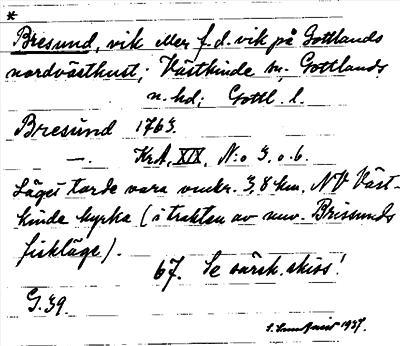 *
Bresund, vik eller f.d. vik på Gottlands
nordvästkust, Västkinde sn, Gottlands
n. hd; Gottl. l.
Bresund 1763.
—. KrA, XIX, N:o 3, o. b.
Läget torde vara omkr. 3,8 km. NV Väst-
kinde kyrka (i trakten av nuv. Brissunds
fiskläge).
67. Se särsk. skiss!
G. 39.
1937.